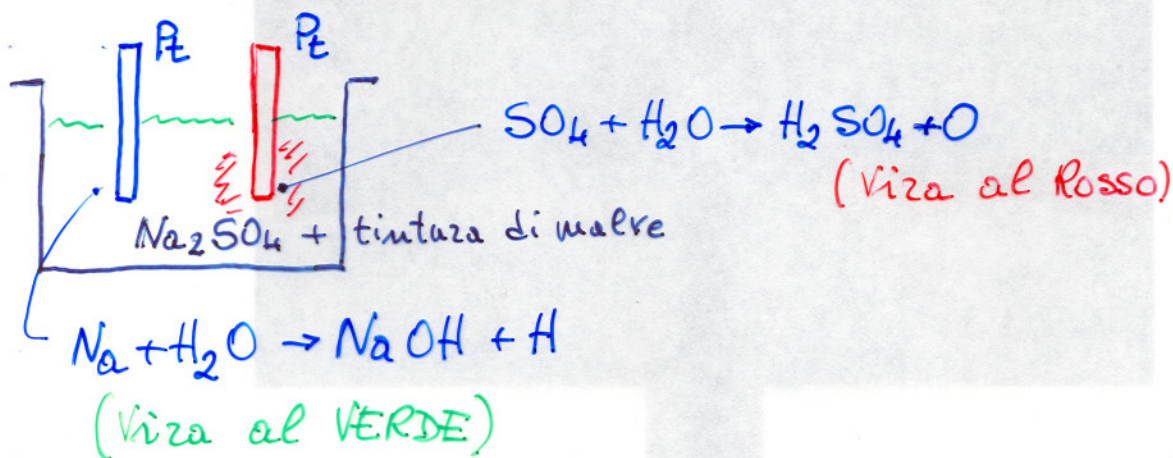 Pt Pt
SO₄ + H₂O → H₂SO₄ + O
(Vira al ROSSO)
Na₂SO₄ + tintura di malve
Na + H₂O → NaOH + H
(Vira al VERDE)